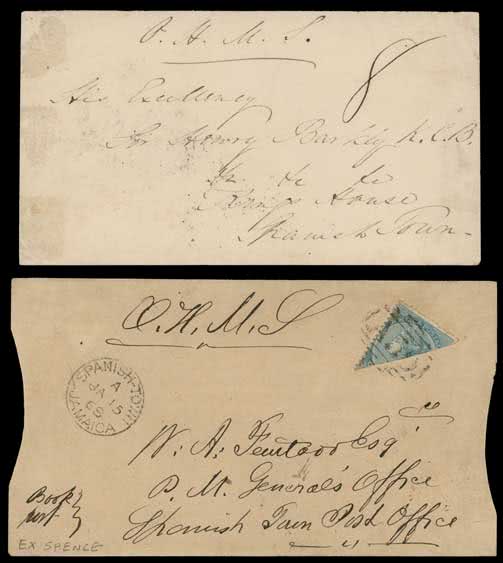 O. H. M. S.
8
His Excellency
Sir Henry Barkly K.C.B.
&c &c &c
King's House
Spanish Town
O.H.M.S
SPANISH-TOWN
JAMAICA
A
JA 15
68
W. A. Esq
P. M. General's Office
Spanish Town Post Office
Book
post
EX SPENCE